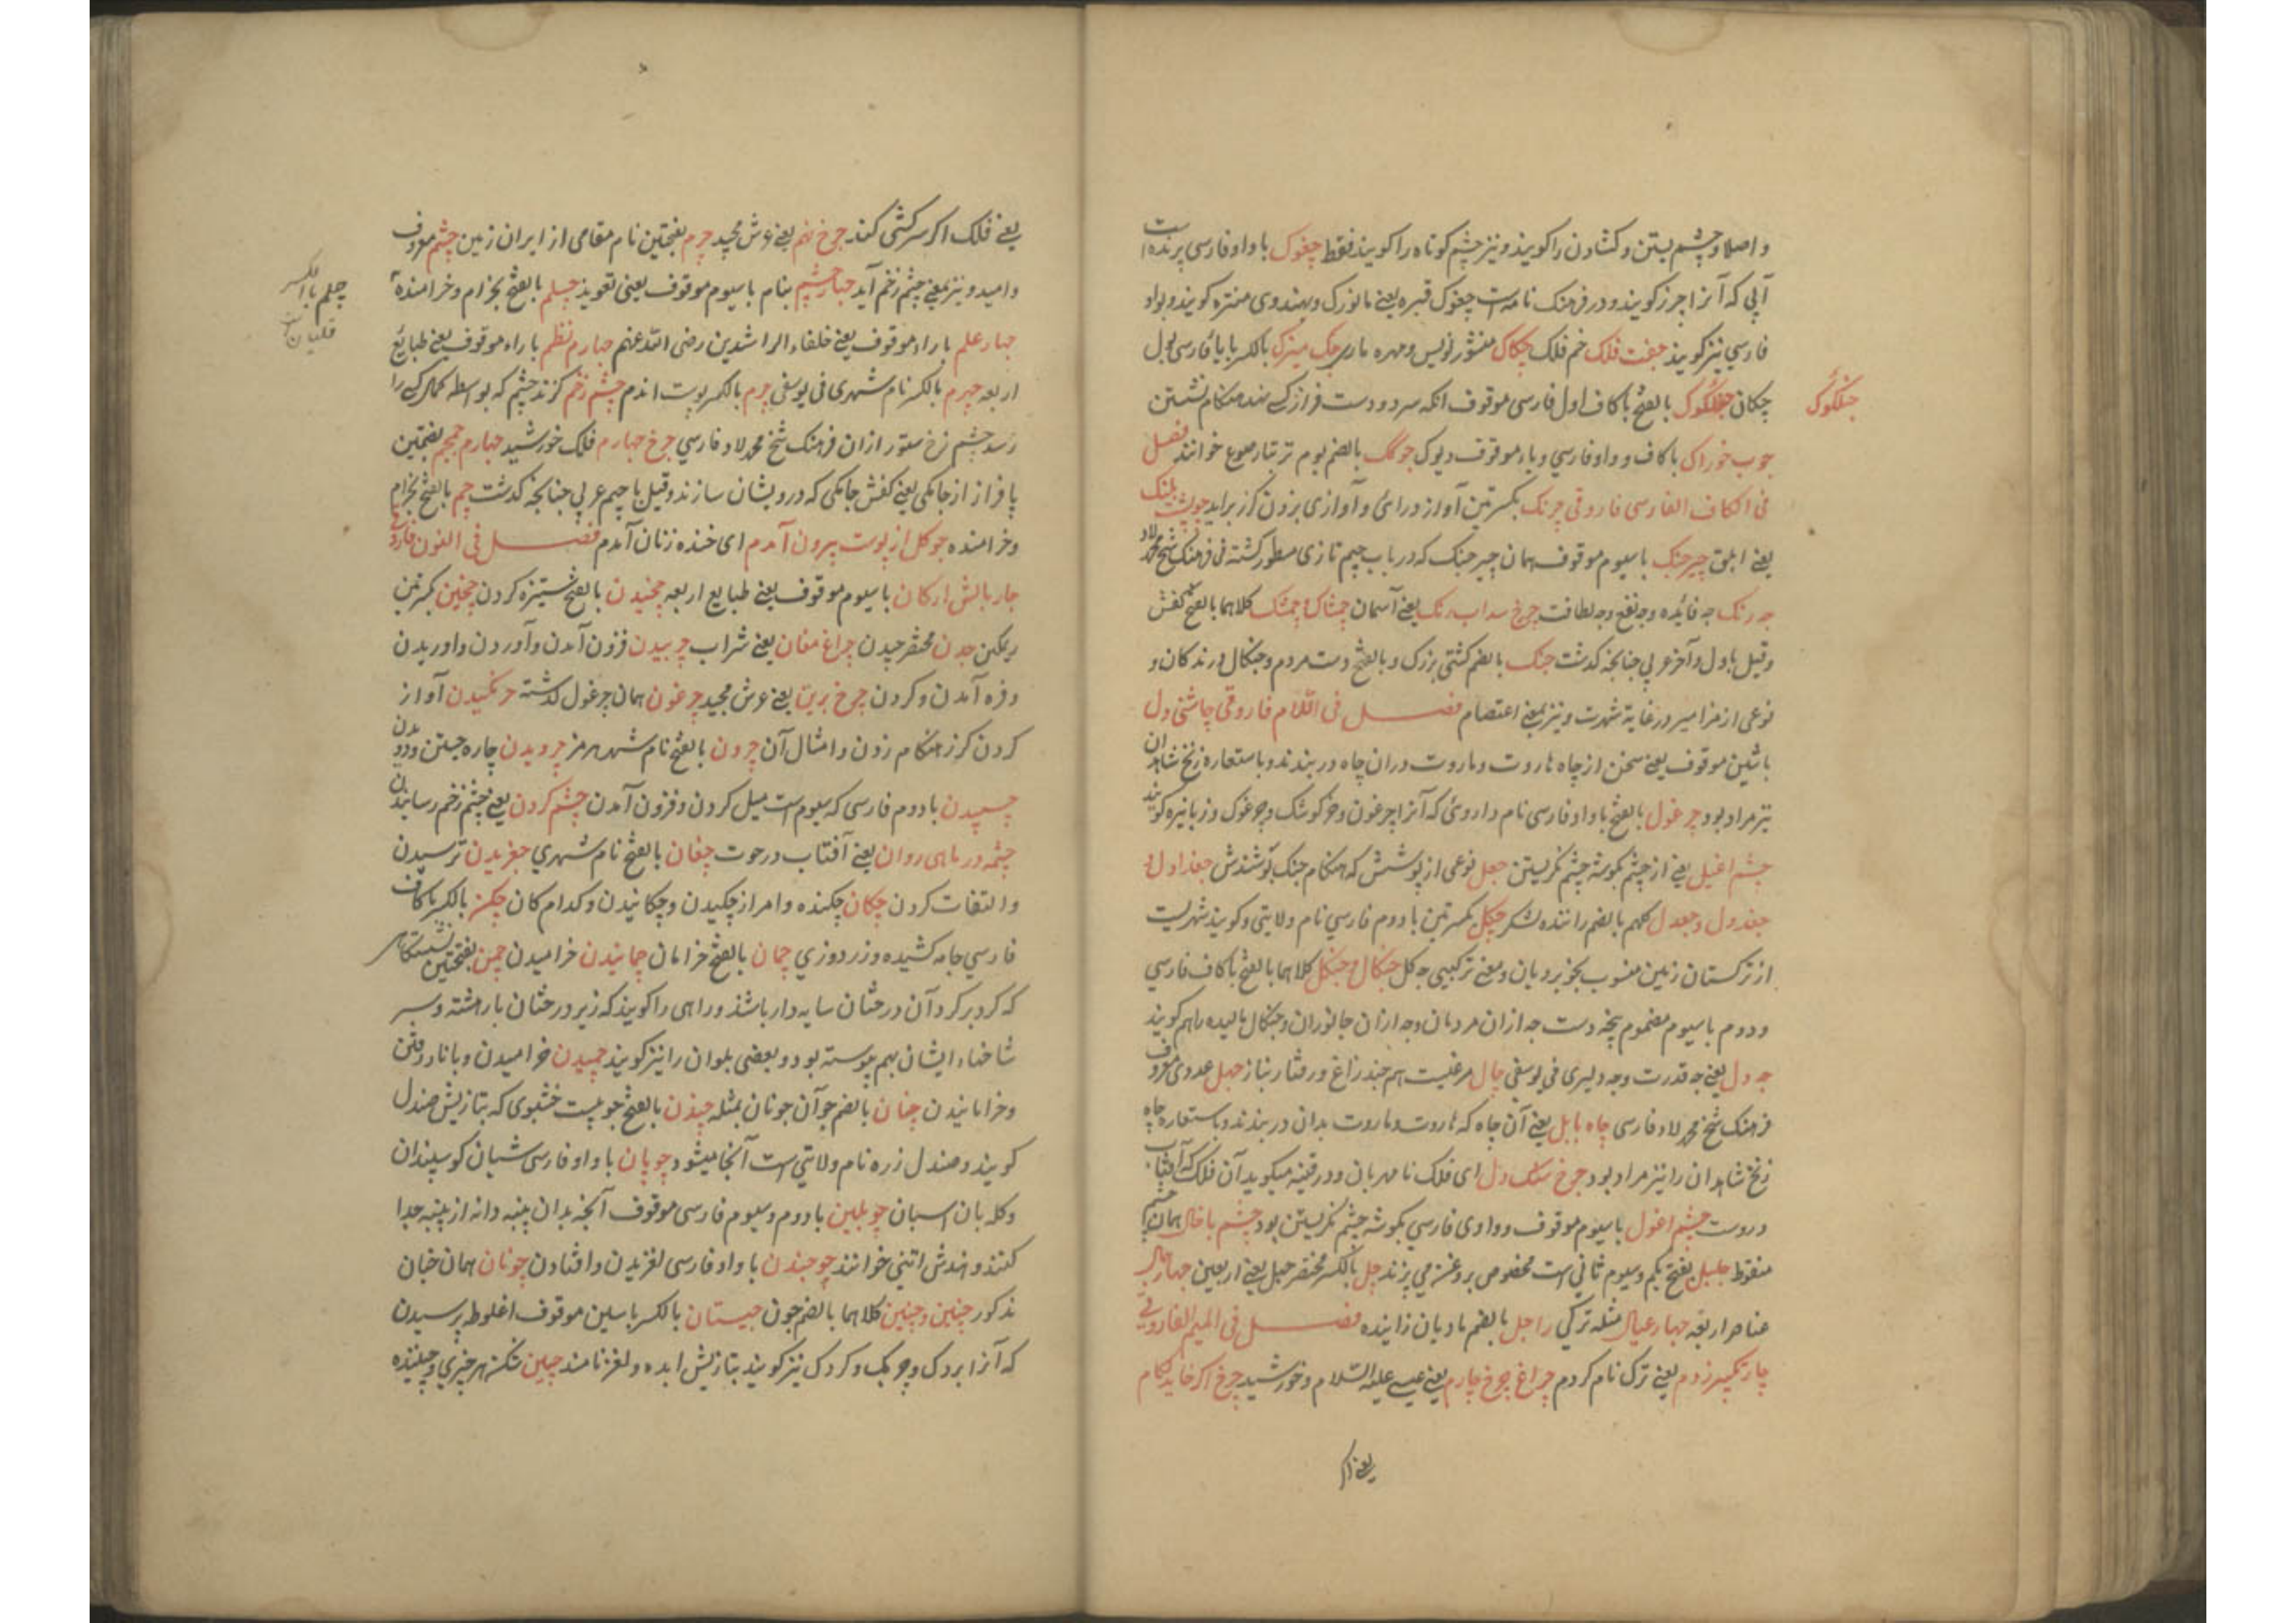 و اصلا و چشم بستن و کشادن را کویند و نیز چشم کوتاه را کویند فقط چغوک با واو فارسی پرنده است
آبی که آنرا چرز کویند و در فرهنک نامه است چغوک قبره یعنی و بهندوی کویند و بواو
فارسی نیز کویند جفت فلک خم فلک چکاک منشور نویس و مهره بالکسر با یا فارسی بول
چکان چنگلوک بالفتح با کاف اول فارسی موقوف انکه سر و دست فراز هنکام نشستن
چنگلوک
چوب خوراک با کاف و واو فارسی و با موقوف دیوک چوگک بالضم بوم خوانند فصل
فی الکاف الفارسی فاروقی چرنک بکسرتین آواز درای و آوازی بزدن کرز براید پلنک
یعنی ابلق چیرجنک با سیوم موقوف همان چیرجنک که در باب جیم تازی مسطور کشته فی فرهنک شیخ محمد لاد
چه رنک چه فائده و چه نفع و چه لطافت چرخ سداب رنک یعنی آسمان چمشاک و چمشک کلاهما بالفتح کفش
و قیل باول و آخر عربی چنانچه کذشت چنک بالضم کشتی بزرک و بالفتح دست مردم و چنکال درندکان و
نوعی از مزامیر در غایة شهرت و نیز بمعنی اعتصام فصل فی اللام فاروقی چاشنی دل
باشین موقوف یعنی سخن از چاه هاروت و ماروت دران چاه دربندند و باستعاره زنخ شاهدان
نیز مراد بود چرغول بالفتح با واو فارسی نام داروئی که آنرا چرغون و خرکوشک و چرغوک و زبانبره کویند
چشم اغیل یعنی از چشم بکوشه چشم نکریستن چغل نوعی از پوشش که هنکام جنک پوشندش چغداول و
چغدول و چغدل کلهم بالضم راننده لشکر چکل بکسرتین با دوم فارسی نام ولایتی و کویند شهریست
از ترکستان زمین منسوب بخوبرویان و معنی ترکیبی چه کل چنکال و چنکل کلاهما بالفتح با کاف فارسی
و دوم با سیوم مضموم پنجه دست چه ازان مردمان و چه ازان جانوران و چنکال مالیده را هم کویند
چه دل یعنی چه قدرت و چه دلیری فی یوسفی چال مرغیست هم چند زاغ و رفتار چهل عددی معروف
فرهنک شیخ محمد لاد فارسی چاه بابل یعنی آن چاه که هاروت و ماروت بدان دربندند و باستعاره چاه
زنخ شاهدان را نیز مراد بود چرخ سنک دل ای فلک نامهربان و در قنیه میکوید آن فلک که آفتاب
دروست چشم اغول با سیوم موقوف و واوی فارسی بکوشه چشم نکریستن بود چشم باغال همان چشم
منقوط چلپل بفتح یکم و سیوم است مخصوص بروغن می پزند چل بالکسر مختصر چهل یعنی اربعین چهار مال
عناصر اربعه چهار عیال مثله ترکی را چل بالضم مادیان زاینده فصل فی المیم الفاروقی
چار تکبیر زدم یعنی ترک نام کردم چراغ چرخ چارم یعنی عیسی علیه السلام و خورشید چرخ اکر خاید لکام
یعنی اکر
یعنی فلک اکر سرکشی کند چرخ نهم یعنی عرش مجید چرم بفتحتین نام مقامی از ایران زمین چشم معروف
و امید و نیز بمعنی چشم زخم آید چهار چشم بنام با سیوم موقوف یعنی تعویذ چلم بالفتح بخرام و خرامنده
چلم بالکسر
قلیان
چهار علم با راء موقوف یعنی خلفاء الراشدین رضی الله عنهم چهارم نظم با راء موقوف یعنی طبائع
اربعه چهرم بالکسر نام شهری فی یوسفی چرم بالکسر پوست اندام چشم زخم کزند چشم که بواسطه کسی را
رسد چشم زخ ستور ازان فرهنک شیخ محمد لاد فارسی چرخ چهارم فلک خورشید چهارم چمچم بضمتین
پا فراز از جامکی یعنی کفش جامکی که درویشان سازند و قیل با جیم عربی چنانچه کذشت چم بالفتح بخرام
و خرامنده چو کل از پوست بیرون آمدم ای خنده زنان آمدم فصل فی النون فاروقی
چار بالش ارکان با سیوم موقوف یعنی طبایع اربعه چخیدن بالفتح ستیزه کردن چخین بکسرتین
ریمکین چدن مختصر چیدن چراغ مغان یعنی شراب چربیدن فزون آمدن و آوردن و اوریدن
و فره آمدن و کردن چرخ برین یعنی عرش مجید چرغون همان چرغول کذشته چرنکیدن آواز
کردن کرز هنکام زدن و امثال آن چرون بالفتح نام شهر هرمز چرویدن چاره جستن و دویدن
چسپیدن با دوم فارسی که سیوم است میل کردن و فزون آمدن چشم کردن یعنی چشم زخم رسانیدن
چشمه در ماهی روان یعنی آفتاب در حوت چغان بالفتح نام شهری چغزیدن ترسیدن
و التفات کردن چکان چکنده و امر از چکیدن و چکانیدن و کدام کان چکن بالکسر با کاف
فارسی جامه کشیده و زردوزی چمان بالفتح خرامان چمانیدن خرامیدن چمن بفتحتین نشستکاهی
که کرد بر کرد آن درختان سایه دار باشد و راهی را کویند که زیر درختان بار هشته و سر
شاخهاء ایشان بهم پیوسته بود و بعضی بلوان را نیز کویند چمیدن خرامیدن و با ناز رفتن
و خرامانیدن چنان بالضم چو آن چونان بمثله چندن بالفتح چوبیست خشبوی که بتازیش صندل
کویند و صندل زره نام ولایتی است آنجا میشود چوپان با واو فارسی شبان کوسپندان
و کله بان اسبان چوبلین با دوم و سیوم فارسی موقوف آنچه بدان پنبه دانه از پنبه جدا
کنند و هندش اتنی خوانند چوخیدن با واو فارسی لغزیدن و افتادن چونان همان چنان
مذکور چنین و چنین کلاهما بالضم چون چیستان بالکسر با سین موقوف اغلوطه پرسیدن
که آنرا بردک و چربک و کردک نیز کویند بتازیش و لغز نامند چین شکن هر چیزی و چیننده